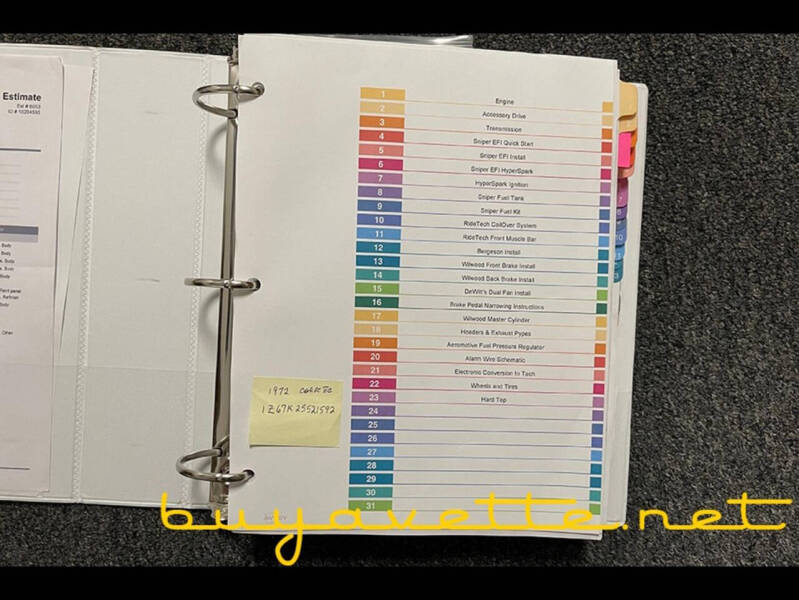 Estimate
Body
Body
Body
Body
Front panel
Refinish
Body
Other
1 Engine
2 Accessory Drive
3 Transmission
4 Sniper EFI Quick Start
5 Sniper EFI Install
6 Sniper EFI HyperSpark
7 HyperSpark Ignition
8 Sniper Fuel Tank
9 Sniper Fuel Kit
10 RideTech CoilOver System
11 RideTech Front Muscle Bar
12 Bergeson Install
13 Wilwood Front Brake Install
14 Wilwood Back Brake Install
15 DeWitt's Dual Fan Install
16 Brake Pedal Narrowing Instructions
17 Wilwood Master Cylinder
18 Headers & Exhaust Pypes
19 Aeromotive Fuel Pressure Regulator
20 Alarm Wire Schematic
21 Electronic Conversion to Tach
22 Wheels and Tires
23 Hard Top
24
25
26
27
28
29
30
31
1972
1Z67K2S521592
buyavette.net